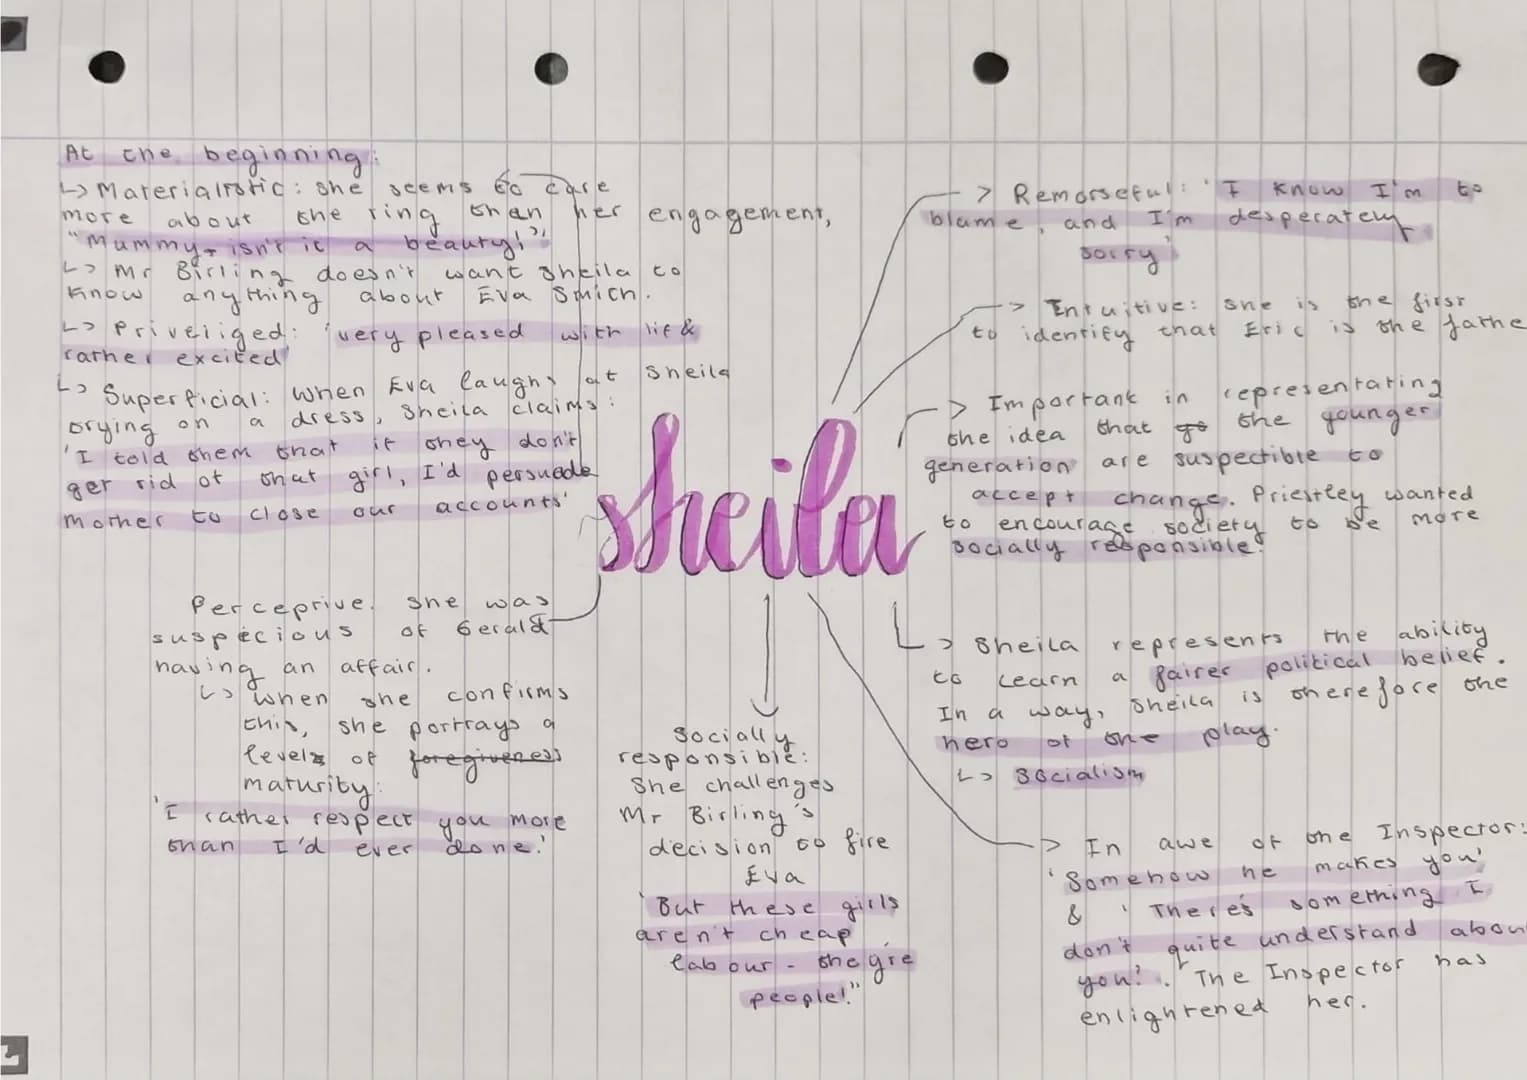 At the beginning:
↳ Materialistic: she seems to care
more about the ring than her engagement,
"Mummy - isn't it a beauty!",
↳ Mr Birling doesn't want Sheila to
know anything about Eva Smith.
↳ Priveliged: 'very pleased with life &
rather excited'
↳ Superficial: when Eva laughs at Sheila
trying on a dress, Sheila claims:
'I told them that if they don't
get rid of that girl, I'd persuade
mother to close our accounts'
Perceptive. She was
suspecious of Gerald
having an affair.
↳ when she confirms
this, she portrays a
levels of foregiveness
maturity:
'I rather respect you more
than I'd ever done.'
sheila
Socially
responsible:
She challenges
Mr Birling's
decision to fire
Eva
'But these girls
aren't cheap
labour - they're
people!"
> Remorseful: 'I know I'm to
blame, and I'm desperately
sorry'
> Intuitive: she is the first
to identify that Eric is the fathe
> Important in representating
the idea that go the younger
generation are suspectible to
accept change. Priestley wanted
to encourage society to be more
socially responsible.
> Sheila represents the ability
to learn a fairer political belief.
In a way, Sheila is therefore the
hero of the play.
↳ Socialism
> In awe of the Inspector:
'Somehow he makes you'
& 'There's something I
don't quite understand abou
you'. The Inspector has
enlightened her.